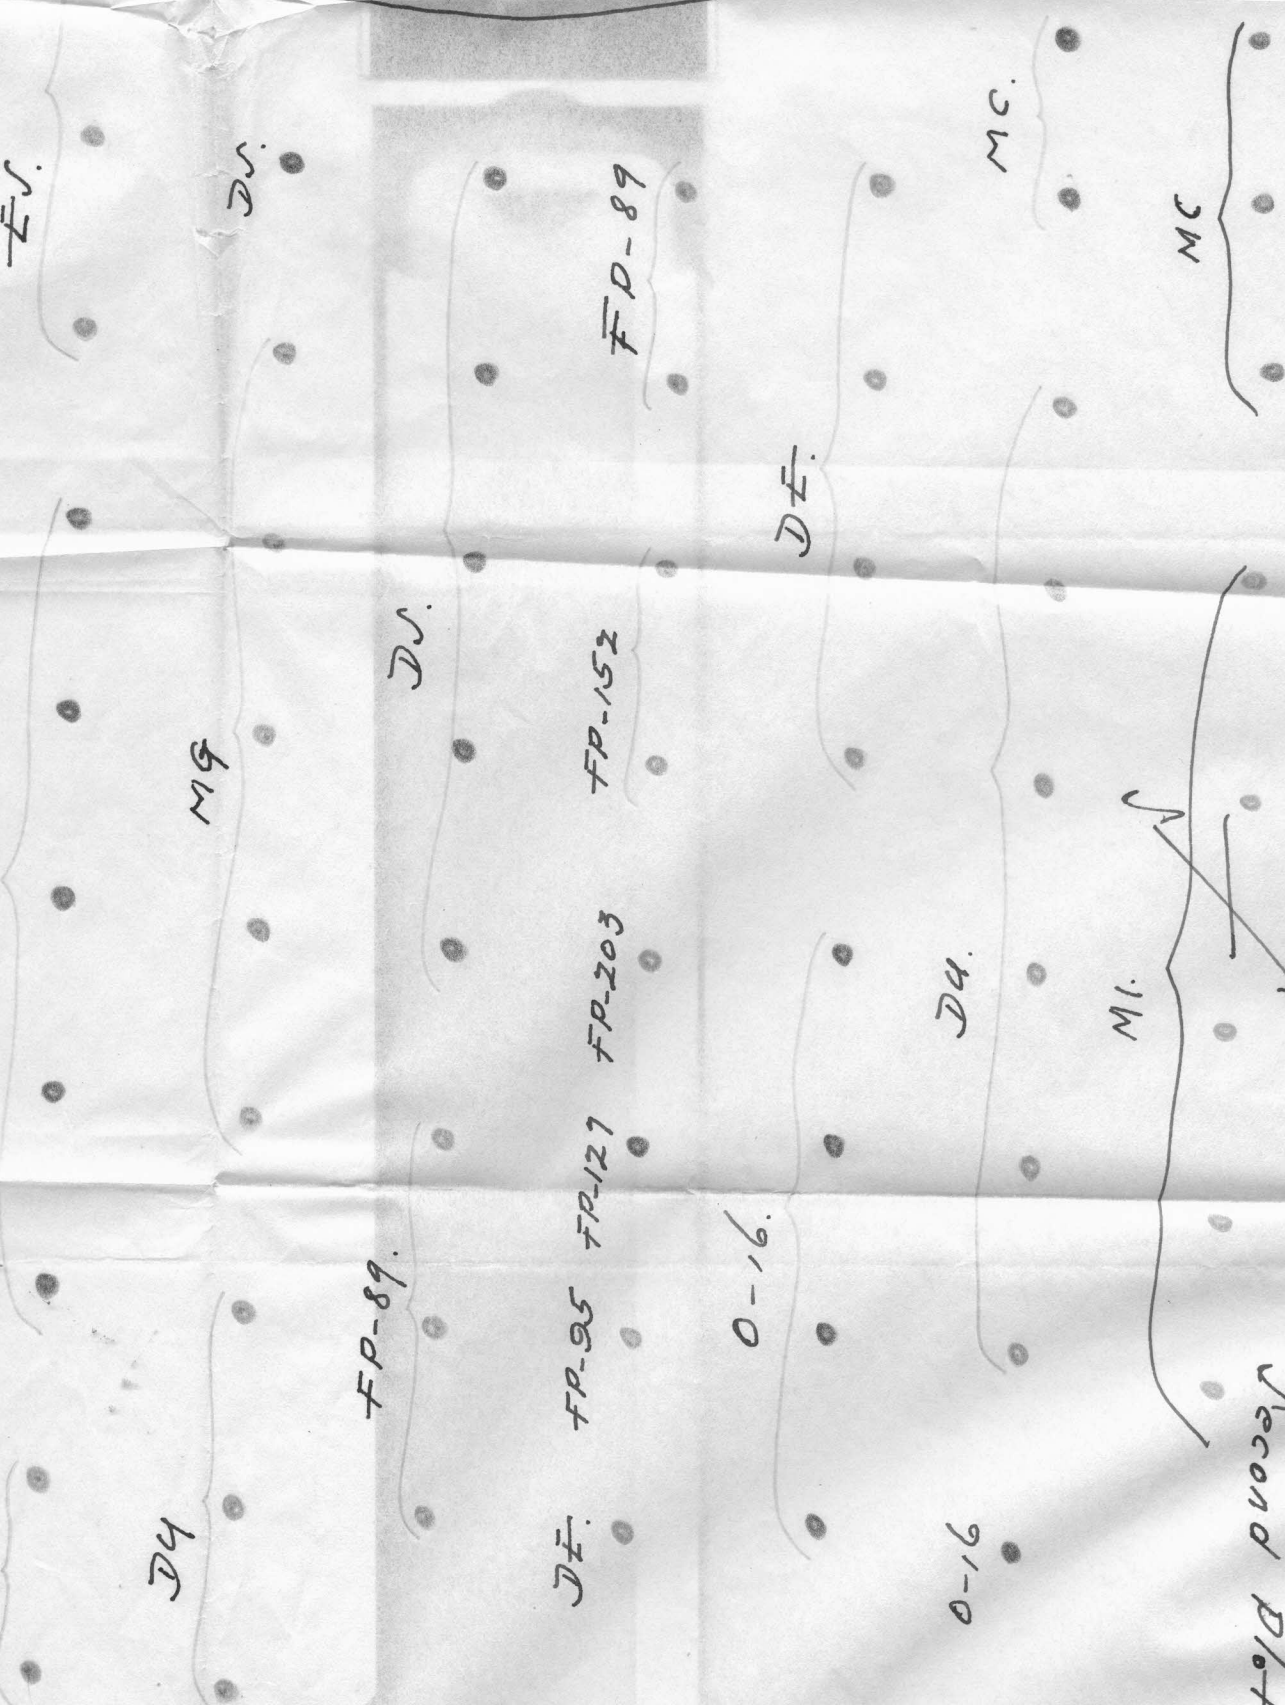 ES.
D4 MG DS.
FP-89. DS.
DE. FP-95 FP-127 FP-203 FP-152 FP-89
0-16. DE.
0-16 D4. MC.
M1. S MC
Second Plot